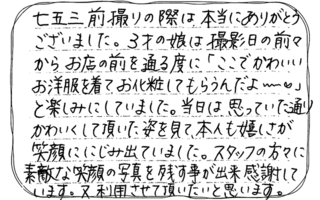 七五三前撮りの際は本当にありがとう
ございました。3才の娘は撮影日の前々
からお店の前を通る度に「ここでかわいい
お洋服を着てお化粧してもらうんだよ〜♡」
と楽しみにしていました。当日は思っていた通り
かわいくして頂いた姿を見て、本人も嬉しさが
笑顔ににじみ出ていました。スタッフの方々に
素敵な笑顔の写真を残す事が出来感謝して
います。又利用させて頂いたいと思います。